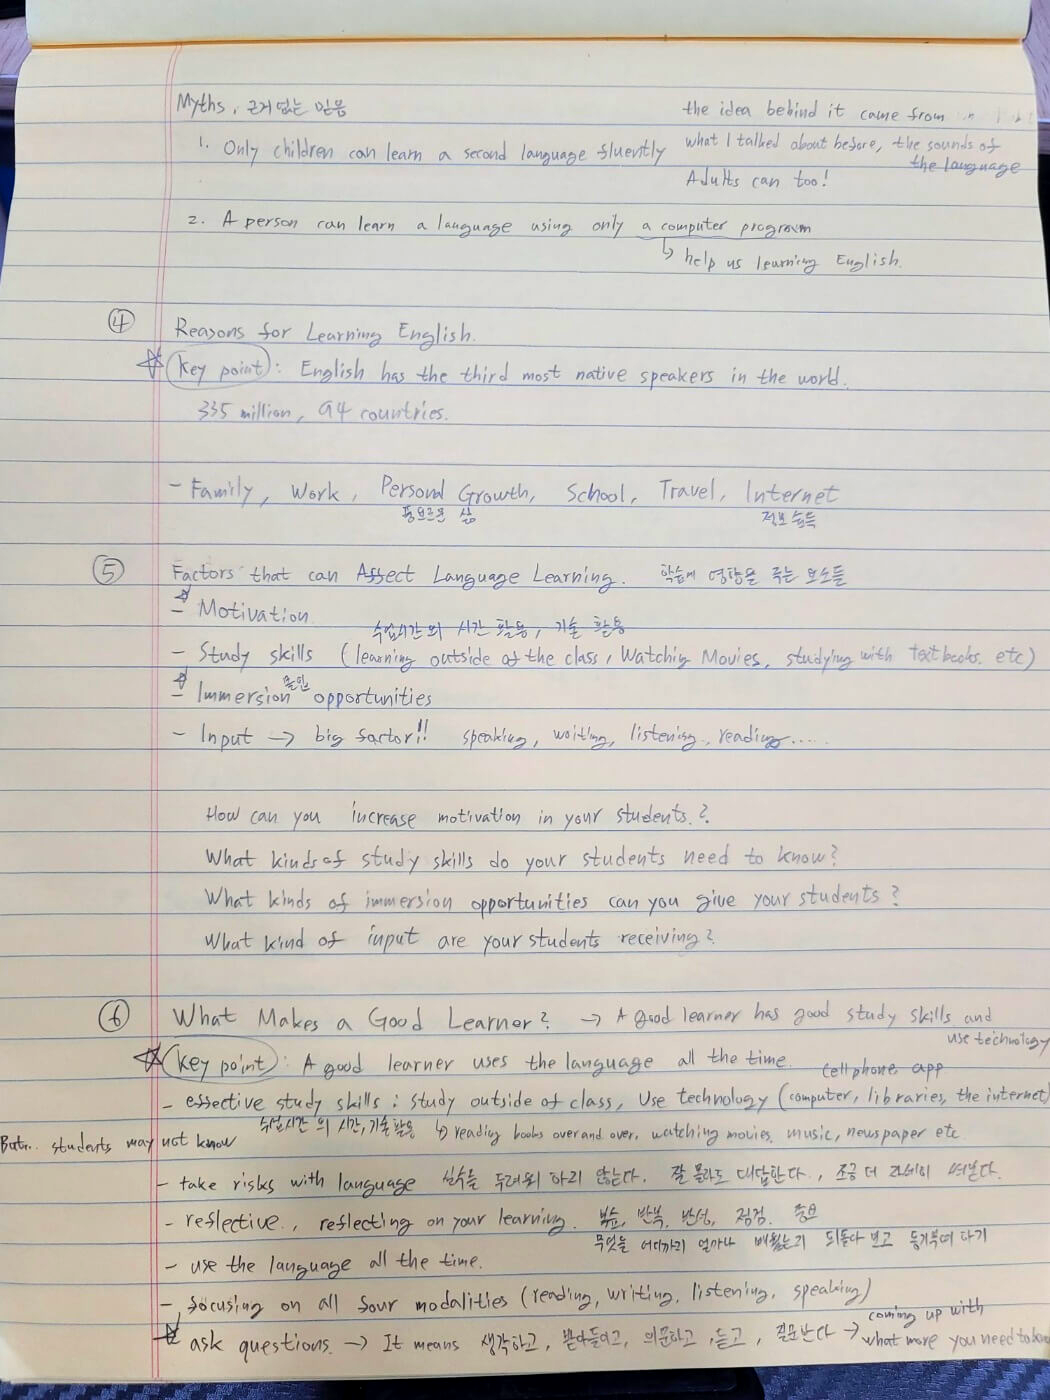 Myths, 근거 없는 믿음
the idea behind it came from
1. Only children can learn a second language fluently
what I talked about before, the sounds of
the language
Adults can too!
2. A person can learn a language using only a computer program
↳ help us learning English.
④ Reasons for Learning English.
☆ Key point : English has the third most native speakers in the world.
335 million, 94 countries.
- Family, Work, Personal Growth, School, Travel, Internet
풍요로운 삶
정보 습득
⑤ Factors that can Affect Language Learning. 학습에 영향을 주는 요소들
☆ - Motivation
수업시간 외 시간 활용, 기술 활용
- Study skills (learning outside of the class, Watching Movies, studying with textbooks. etc)
☆ - Immersion opportunities
몰입
- Input → big factor!! speaking, writing, listening, reading.....
How can you increase motivation in your students.?
What kinds of study skills do your students need to know?
What kinds of immersion opportunities can you give your students?
What kind of input are your students receiving?
⑥ What Makes a Good Learner? → A good learner has good study skills and
use technology
☆ Key point : A good learner uses the language all the time.
cell phone, app
- effective study skills : study outside of class, Use technology (computer, libraries, the internet)
But.. students may not know
수업시간 외 시간, 기술 활용 ↳ reading books over and over, watching movies, music, newspaper etc
- take risks with language 실수를 두려워 하지 않는다. 잘 몰라도 대답한다.,
- reflective, reflecting on your learning. 복습, 반복, 반성, 점검. 중요
무엇을 어디까지 얼마나 배웠는지 되돌아 보고 동기부여 다지기
- use the language all the time.
- focusing on all four modalities (reading, writing, listening, speaking)
☆ ask questions. → It means 생각하고, 받아들이고, 의문하고, 듣고, 질문한다 → coming up with
what more you need to know